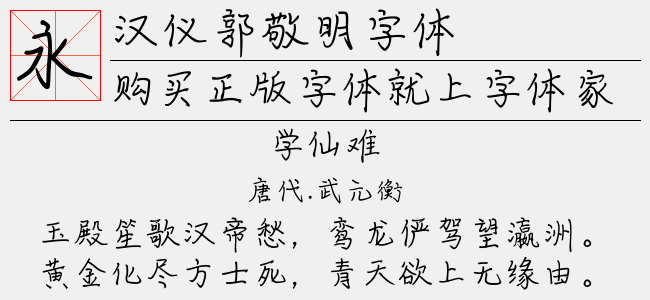 永
汉仪郭敬明字体
购买正版字体就上字体家
学仙难
唐代.武元衡
玉殿笙歌汉帝愁，鸾龙俨驾望瀛洲。
黄金化尽方士死，青天欲上无缘由。